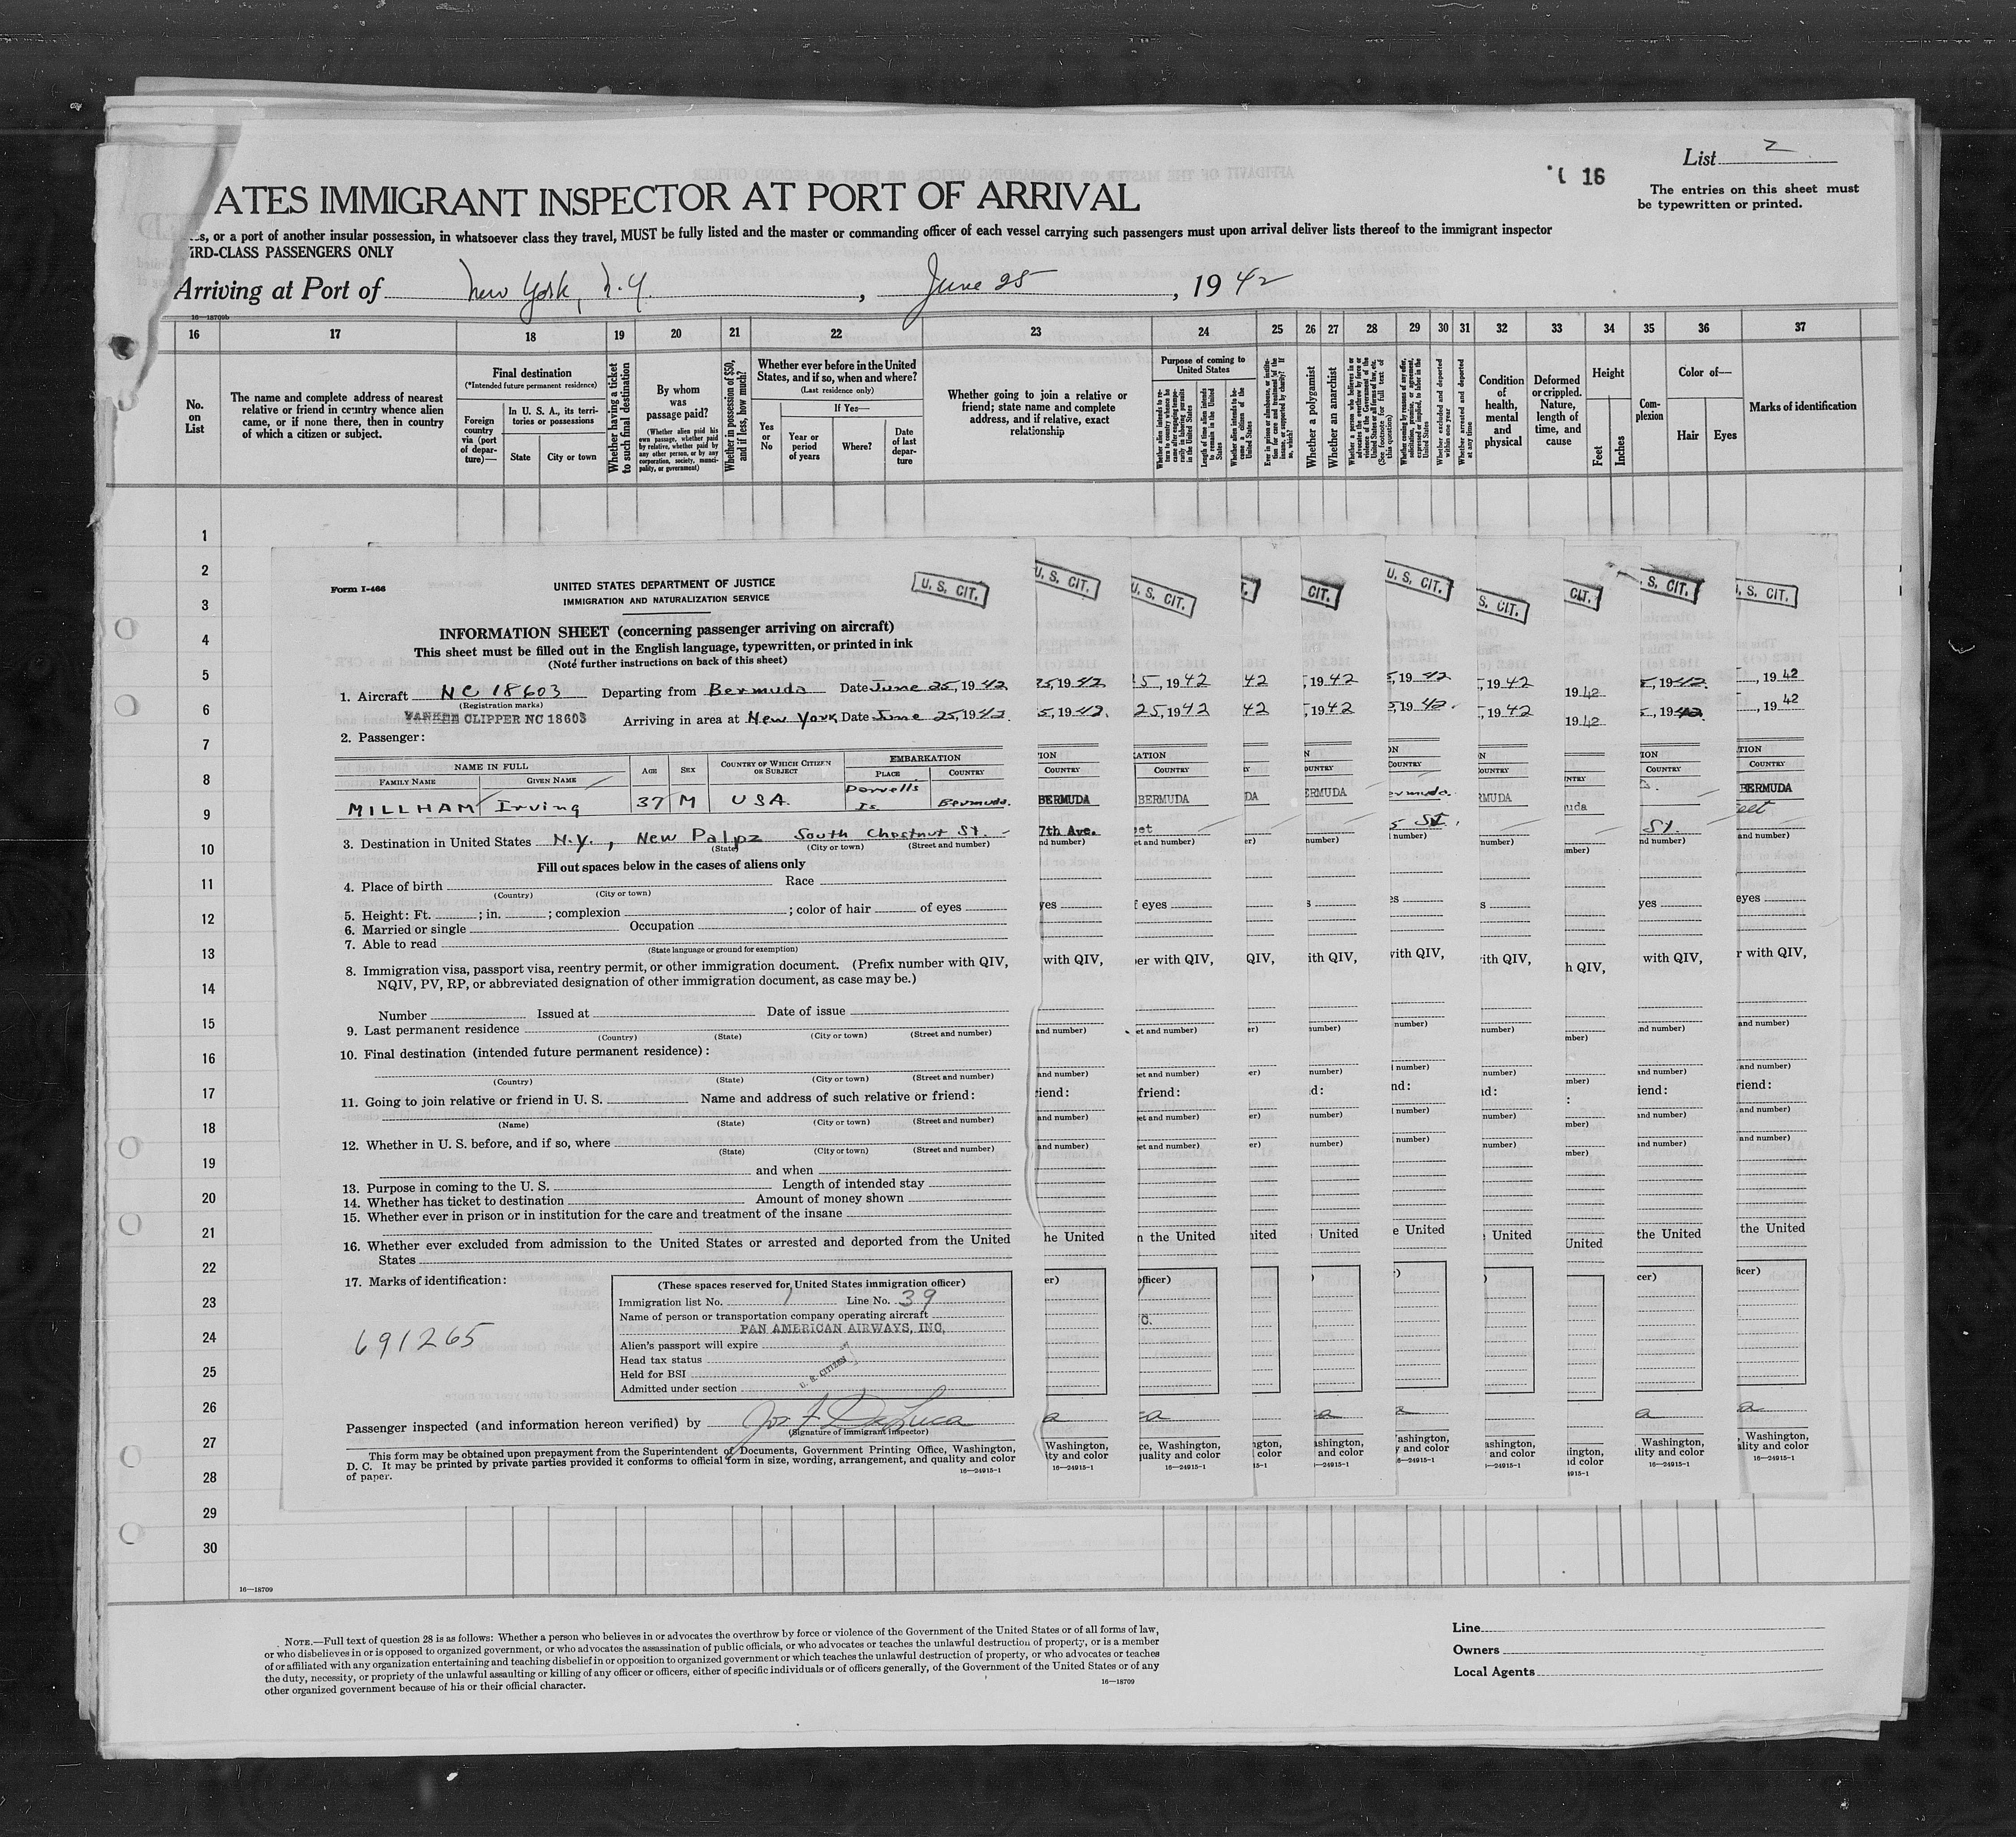 List 2
16
The entries on this sheet must
be typewritten or printed.
ATES IMMIGRANT INSPECTOR AT PORT OF ARRIVAL
es, or a port of another insular possession, in whatsoever class they travel, MUST be fully listed and the master or commanding officer of each vessel carrying such passengers must upon arrival deliver lists thereof to the immigrant inspector
IRD-CLASS PASSENGERS ONLY
Arriving at Port of New York, N.Y., June 25, 1942
16—18709b
16 17 18 19 20 21 22 23 24 25 26 27 28 29 30 31 32 33 34 35 36 37
No. on List
The name and complete address of nearest relative or friend in country whence alien came, or if none there, then in country of which a citizen or subject.
Final destination
(*Intended future permanent residence)
Foreign country via (port of departure)—
In U. S. A., its territories or possessions
State
City or town
Whether having a ticket to such final destination
By whom was passage paid?
(Whether alien paid his own passage, whether paid by relative, whether paid by any other person, or by any corporation, society, municipality, or government)
Whether in possession of $50, and if less, how much?
Whether ever before in the United States, and if so, when and where?
(Last residence only)
Yes or No
If Yes—
Year or period of years
Where?
Date of last departure
Whether going to join a relative or friend; state name and complete address, and if relative, exact relationship
Purpose of coming to United States
Whether alien intends to return to country whence he came after engaging temporarily in laboring pursuits in the United States
Length of time alien intends to remain in the United States
Whether alien intends to become a citizen of the United States
Ever in prison or almshouse, or institution for care and treatment of the insane, or supported by charity? If so, which?
Whether a polygamist
Whether an anarchist
Whether a person who believes in or advocates the overthrow by force or violence of the Government of the United States or all forms of law, etc. (See footnote for full text of this question)
Whether coming by reason of any offer, solicitation, promise, or agreement, expressed or implied, to labor in the United States
Whether excluded and deported within one year
Whether arrested and deported at any time
Condition of health, mental and physical
Deformed or crippled. Nature, length of time, and cause
Height
Feet
Inches
Complexion
Color of—
Hair
Eyes
Marks of identification
1
2
3
4
5
6
7
8
9
10
11
12
13
14
15
16
17
18
19
20
21
22
23
24
25
26
27
28
29
30
Form I-466
UNITED STATES DEPARTMENT OF JUSTICE
IMMIGRATION AND NATURALIZATION SERVICE
U. S. CIT.
INFORMATION SHEET (concerning passenger arriving on aircraft)
This sheet must be filled out in the English language, typewritten, or printed in ink
(Note further instructions on back of this sheet)
1. Aircraft NC 18603 Departing from Bermuda Date June 25, 1942
(Registration marks)
YANKEE CLIPPER NC 18603 Arriving in area at New York Date June 25, 1942.
2. Passenger:
NAME IN FULL
FAMILY NAME GIVEN NAME
AGE SEX COUNTRY OF WHICH CITIZEN OR SUBJECT
EMBARKATION
PLACE COUNTRY
MILLHAM Irving 37 M USA. Darrells Is Bermuda.
3. Destination in United States N.Y., New Palpz South Chestnut St.
(State) (City or town) (Street and number)
Fill out spaces below in the cases of aliens only
4. Place of birth Race
(Country) (City or town)
5. Height: Ft. ; in. ; complexion ; color of hair of eyes
6. Married or single Occupation
7. Able to read
(State language or ground for exemption)
8. Immigration visa, passport visa, reentry permit, or other immigration document. (Prefix number with QIV,
NQIV, PV, RP, or abbreviated designation of other immigration document, as case may be.)
Number Issued at Date of issue
9. Last permanent residence
(Country) (State) (City or town) (Street and number)
10. Final destination (intended future permanent residence):
(Country) (State) (City or town) (Street and number)
11. Going to join relative or friend in U. S. Name and address of such relative or friend:
(Name) (State) (City or town) (Street and number)
12. Whether in U. S. before, and if so, where
(State) (City or town) (Street and number)
and when
13. Purpose in coming to the U. S. Length of intended stay
14. Whether has ticket to destination Amount of money shown
15. Whether ever in prison or in institution for the care and treatment of the insane
16. Whether ever excluded from admission to the United States or arrested and deported from the United
States
17. Marks of identification:
691265
(These spaces reserved for United States immigration officer)
Immigration list No. 1 Line No. 39
Name of person or transportation company operating aircraft
PAN AMERICAN AIRWAYS, INC.
Alien's passport will expire
Head tax status
Held for BSI
Admitted under section
U. S. CITIZEN
Passenger inspected (and information hereon verified) by Jos F. DeLuca
(Signature of immigrant inspector)
This form may be obtained upon prepayment from the Superintendent of Documents, Government Printing Office, Washington,
D. C. It may be printed by private parties provided it conforms to official form in size, wording, arrangement, and quality and color
of paper.
16—24915-1
16—18709
NOTE.—Full text of question 28 is as follows: Whether a person who believes in or advocates the overthrow by force or violence of the Government of the United States or of all forms of law,
or who disbelieves in or is opposed to organized government, or who advocates the assassination of public officials, or who advocates or teaches the unlawful destruction of property, or is a member
of or affiliated with any organization entertaining and teaching disbelief in or opposition to organized government or which teaches the unlawful destruction of property, or who advocates or teaches
the duty, necessity, or propriety of the unlawful assaulting or killing of any officer or officers, either of specific individuals or of officers generally, of the Government of the United States or of any
other organized government because of his or their official character.
16—18709
Line
Owners
Local Agents